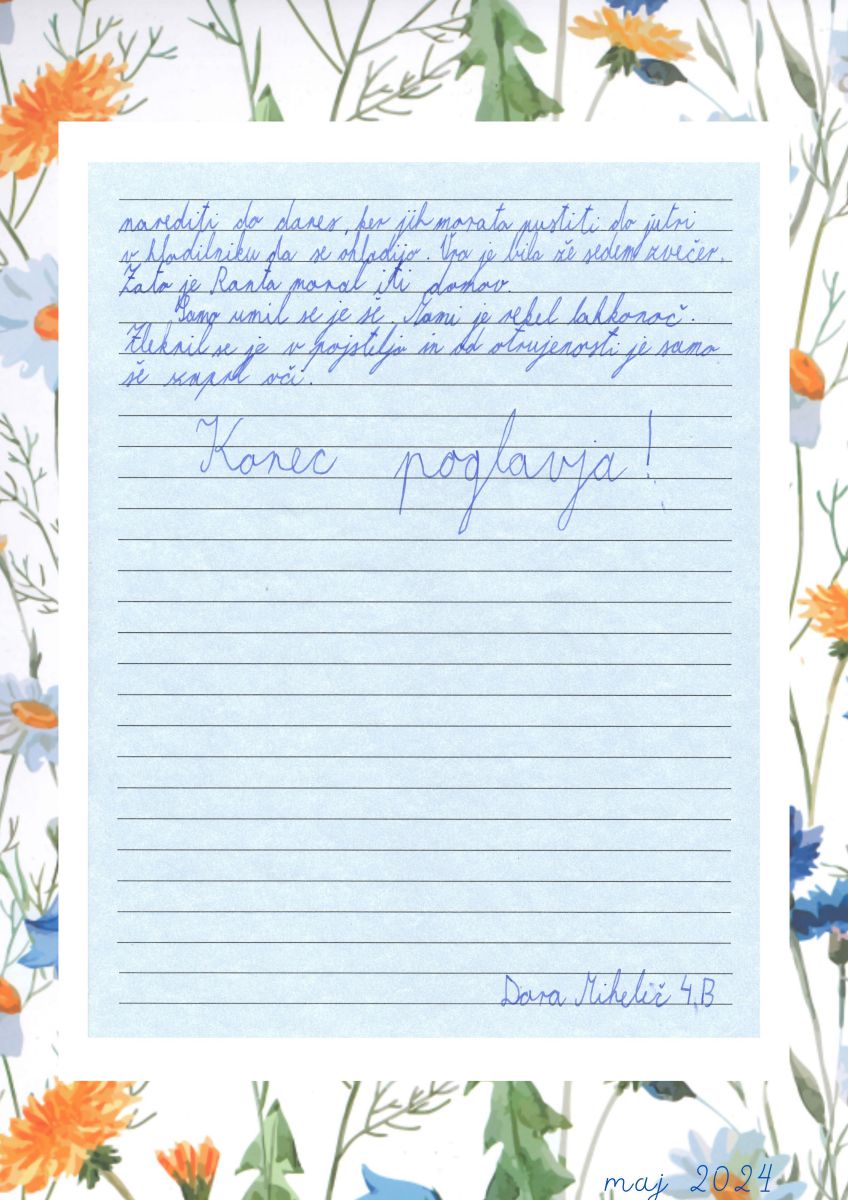 narediti do danes, ker jih morata pustiti do jutri
v hladilniku da se ohladijo. Ura je bila že sedem zvečer.
Zato je Ranta moral iti domov.
Samo umil se je še. Mami je rekel lahkonoč.
Zleknil se je v pojsteljo in od otrujenosti je samo
še zaprl oči.
Konec poglavja!
Dora Mihelič 4.B
maj 2024